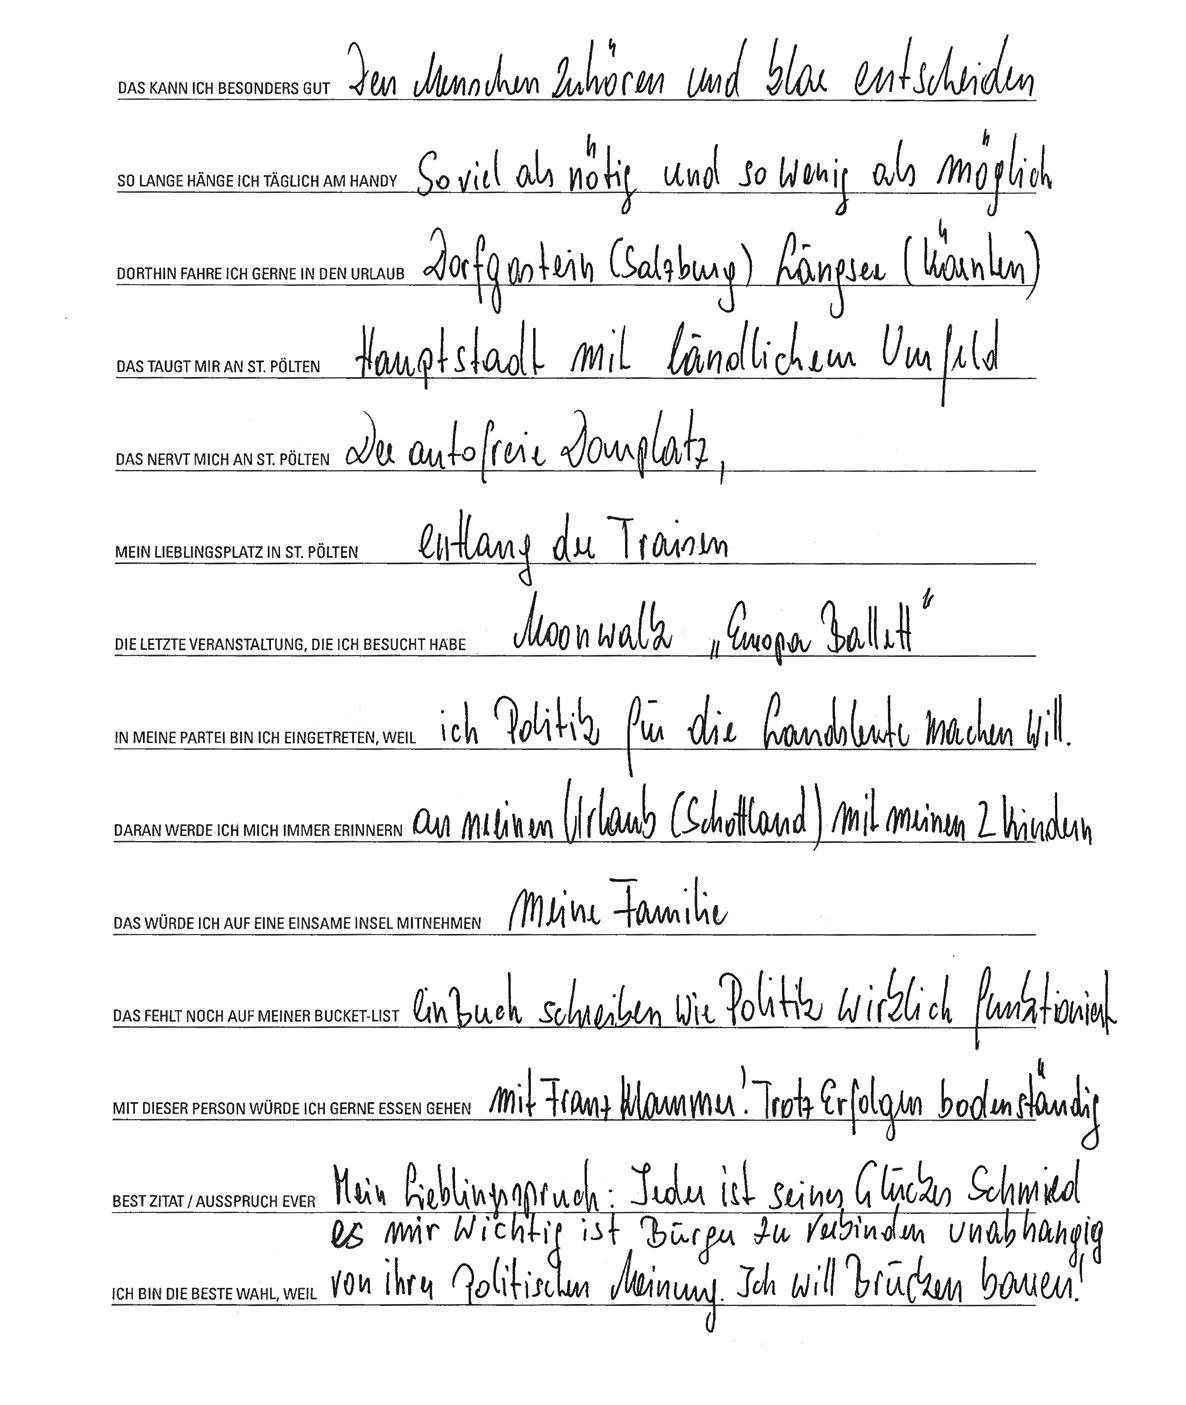 DAS KANN ICH BESONDERS GUT Den Menschen Zuhören und klar entscheiden
SO LANGE HÄNGE ICH TÄGLICH AM HANDY Soviel als nötig und so wenig als möglich
DORTHIN FAHRE ICH GERNE IN DEN URLAUB Dorfgastein (Salzburg) Längsee (Kärnten)
DAS TAUGT MIR AN ST. PÖLTEN Hauptstadt mit ländlichem Umfeld
DAS NERVT MICH AN ST. PÖLTEN Der autofreie Domplatz,
MEIN LIEBLINGSPLATZ IN ST. PÖLTEN entlang der Traisen
DIE LETZTE VERANSTALTUNG, DIE ICH BESUCHT HABE Moonwalk „Europa Ballett“
IN MEINE PARTEI BIN ICH EINGETRETEN, WEIL ich Politik für die Landsleute machen will.
DARAN WERDE ICH MICH IMMER ERINNERN an meinen Urlaub (Schottland) mit meinen 2 Kindern
DAS WÜRDE ICH AUF EINE EINSAME INSEL MITNEHMEN meine Familie
DAS FEHLT NOCH AUF MEINER BUCKET-LIST ein Buch schreiben wie Politik wirklich funktioniert
MIT DIESER PERSON WÜRDE ICH GERNE ESSEN GEHEN mit Franz Klammer! Trotz Erfolgen bodenständig
BEST ZITAT / AUSSPRUCH EVER Mein Lieblingsspruch: Jeder ist seines Glückes Schmied
es mir wichtig ist Bürger zu verbinden unabhängig
ICH BIN DIE BESTE WAHL, WEIL von ihrer Politischen Meinung. Ich will Brücken bauen!